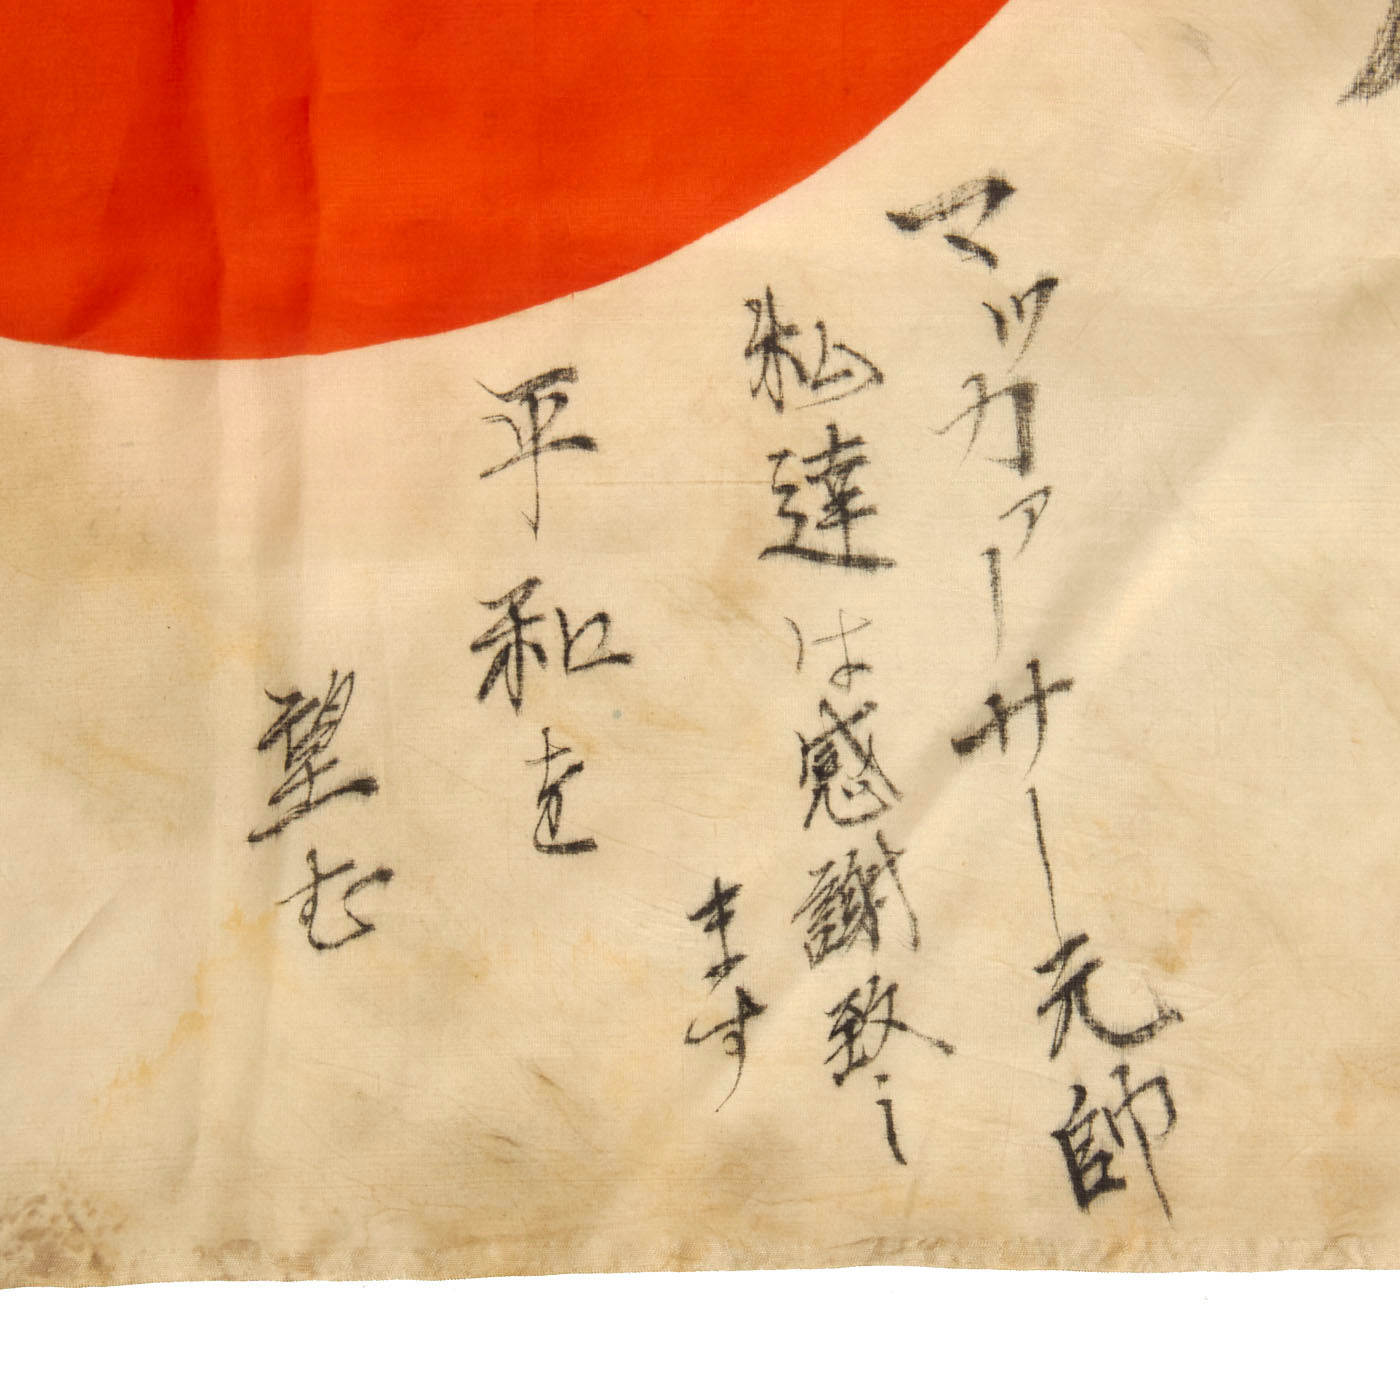 マッカァーサー元帥
私達は感謝致し
ます
平和を
望む